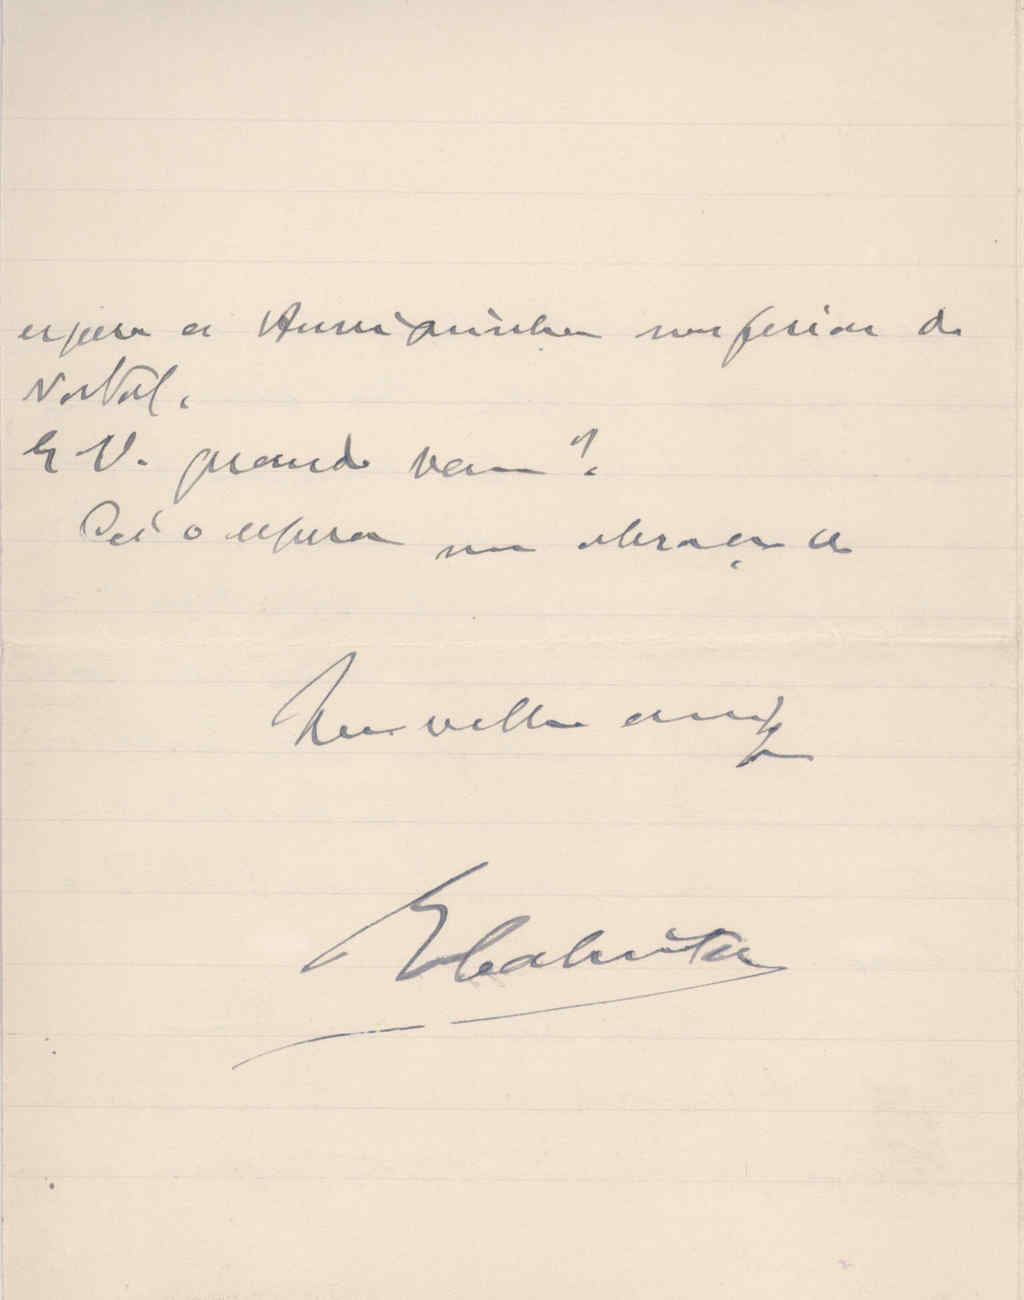 espera a Henriquinha nas ferias do
Natal.
E V. quando vem?
Cá o espera um abraço do
seu velho amigo